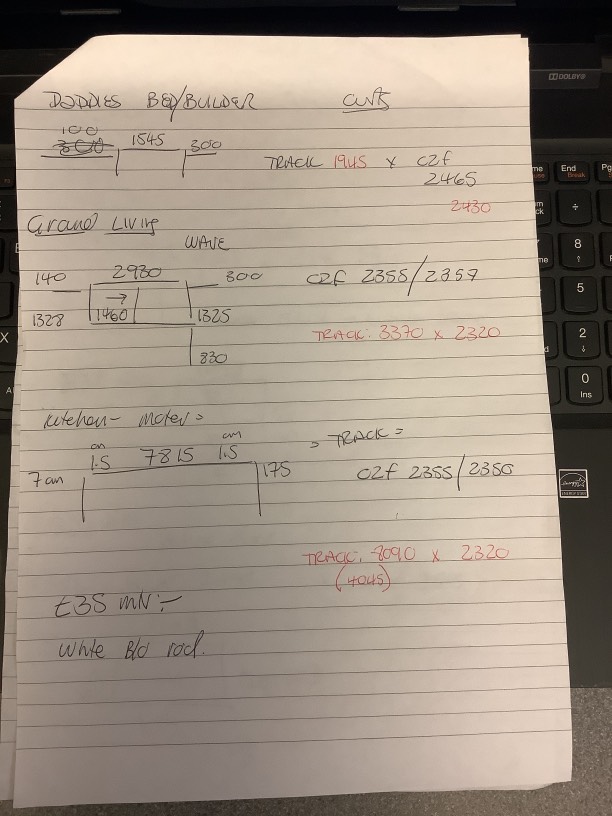 DODDIES BED/BUILDER CUVS
100
300 1545 300
TRACK 1945 x c2f
2465
2430
Ground Living
WAVE
140 2930 300 c2f 2355/2357
1328 1460 1325
TRACK: 3370 x 2320
830
Kitchen - Motor =
cm cm
1.5 7815 1.5 = TRACK =
7cm 175 c2f 2355/2350
TRACK: 8090 x 2320
(4045)
£35 mN:-
White B/O rod.
DOLBY
End
Break
8
5
2
0
Ins